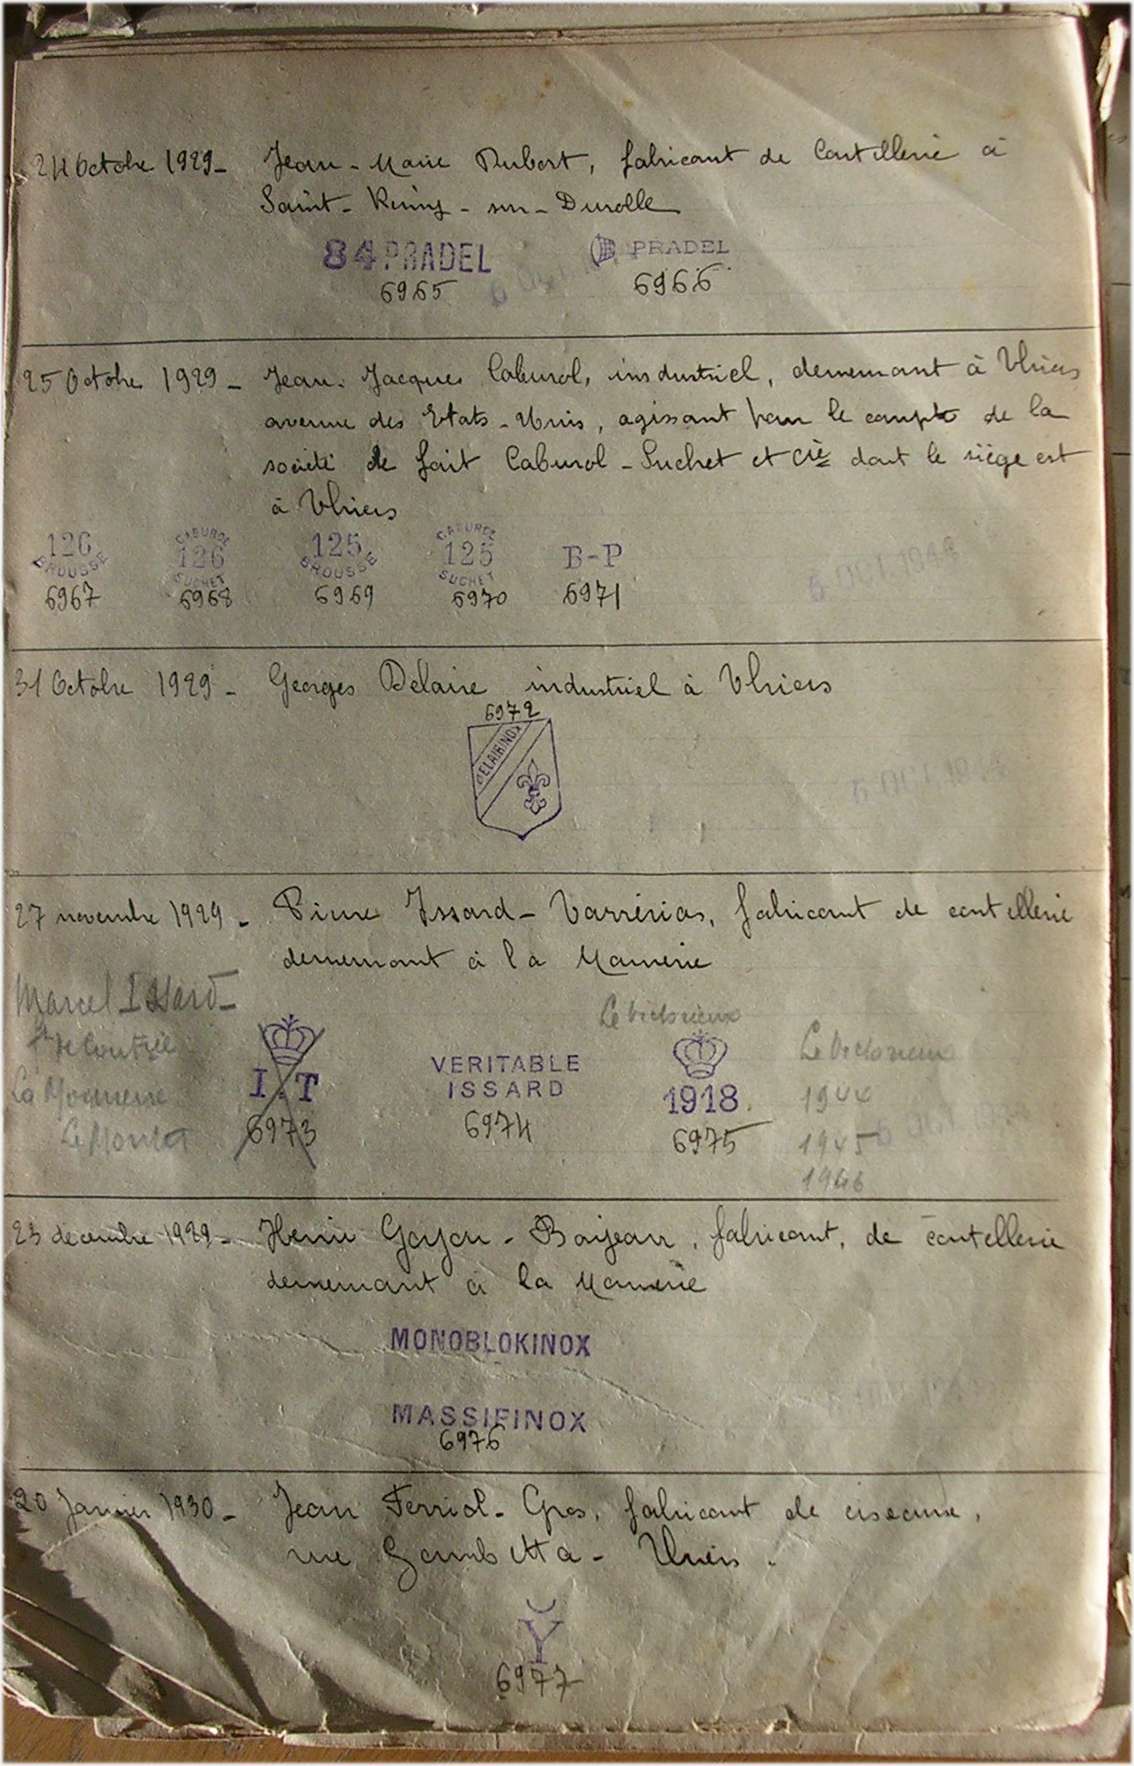 24 Octobre 1929 - Jean-Marie Dubost, fabricant de Coutellerie à
Saint-Remy-sur-Durolle
84 PRADEL PRADEL
6965 6966
25 Octobre 1929 - Jean-Jacques Caburol, industriel, demeurant à Thiers
avenue des Etats-Unis, agissant pour le compte de la
société de fait Caburol-Suchet et Cie dont le siège est
à Thiers
126 BROUSSE CABUROL 126 SUCHET 125 BROUSSE CABUROL 125 SUCHET B-P
6967 6968 6969 6970 6971
31 Octobre 1929 - Georges Delaire industriel à Thiers
6972
DELAIRINOX
27 novembre 1929 - Pierre Issard-Varrérias, fabricant de coutellerie
demeurant à la Monnerie
Marcel Issard
Le Victorieux
ft de Coutel
La Monnerie
Le Montel
I T
6973
VERITABLE
ISSARD
6974
1918
6975
Le Victorieux
1944
1945
1946
23 décembre 1929 - Henri Goyon-Baijean, fabricant, de coutellerie
demeurant à la Monnerie
MONOBLOKINOX
MASSIFINOX
6976
20 Janvier 1930 - Jean Ferriol-Gros, fabricant de ciseaux,
rue Gambetta - Thiers.
Y
6977